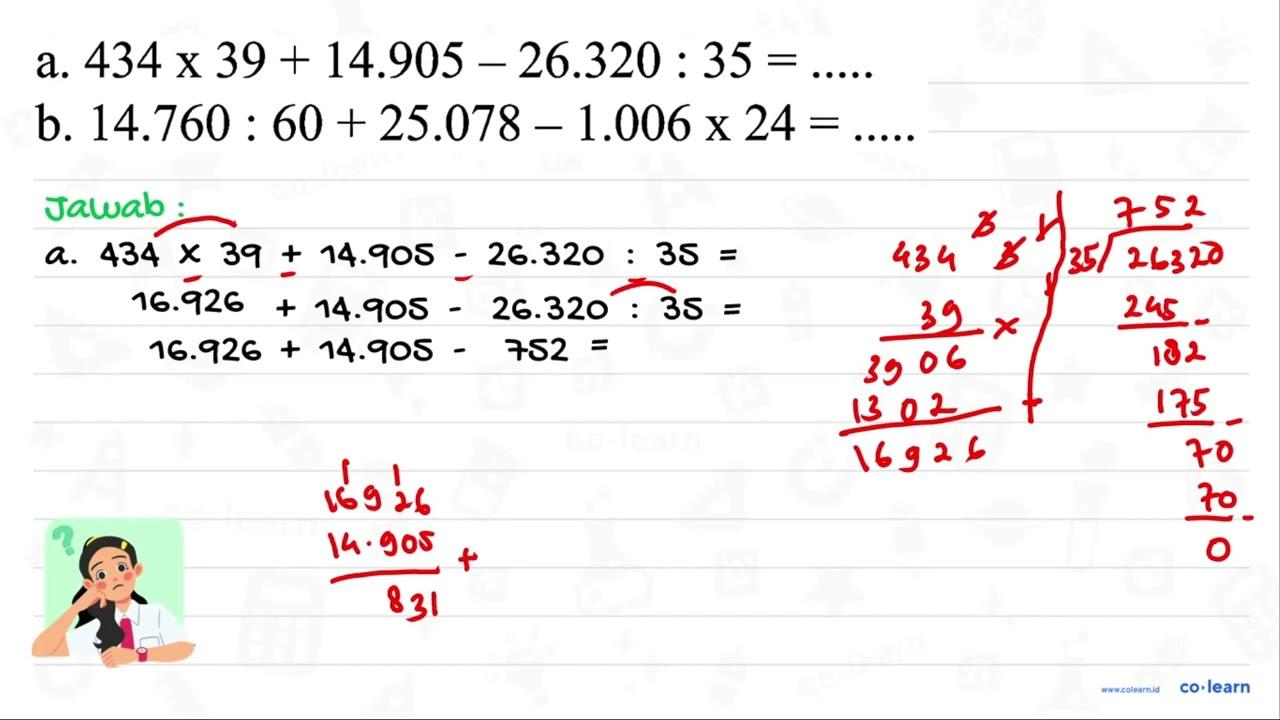 a. 434 x 39 + 14.905 – 26.320 : 35 = .....
b. 14.760 : 60 + 25.078 – 1.006 x 24 = .....
Jawab :
a. 434 x 39 + 14.905 - 26.320 : 35 =
16.926 + 14.905 - 26.320 : 35 =
16.926 + 14.905 - 752 =
434
39 x
3906
1302 +
16926
752
35 26320
245 -
182
175 -
70
70 -
0
1 1
16926
14.905 +
831
?
www.colearn.id co·learn